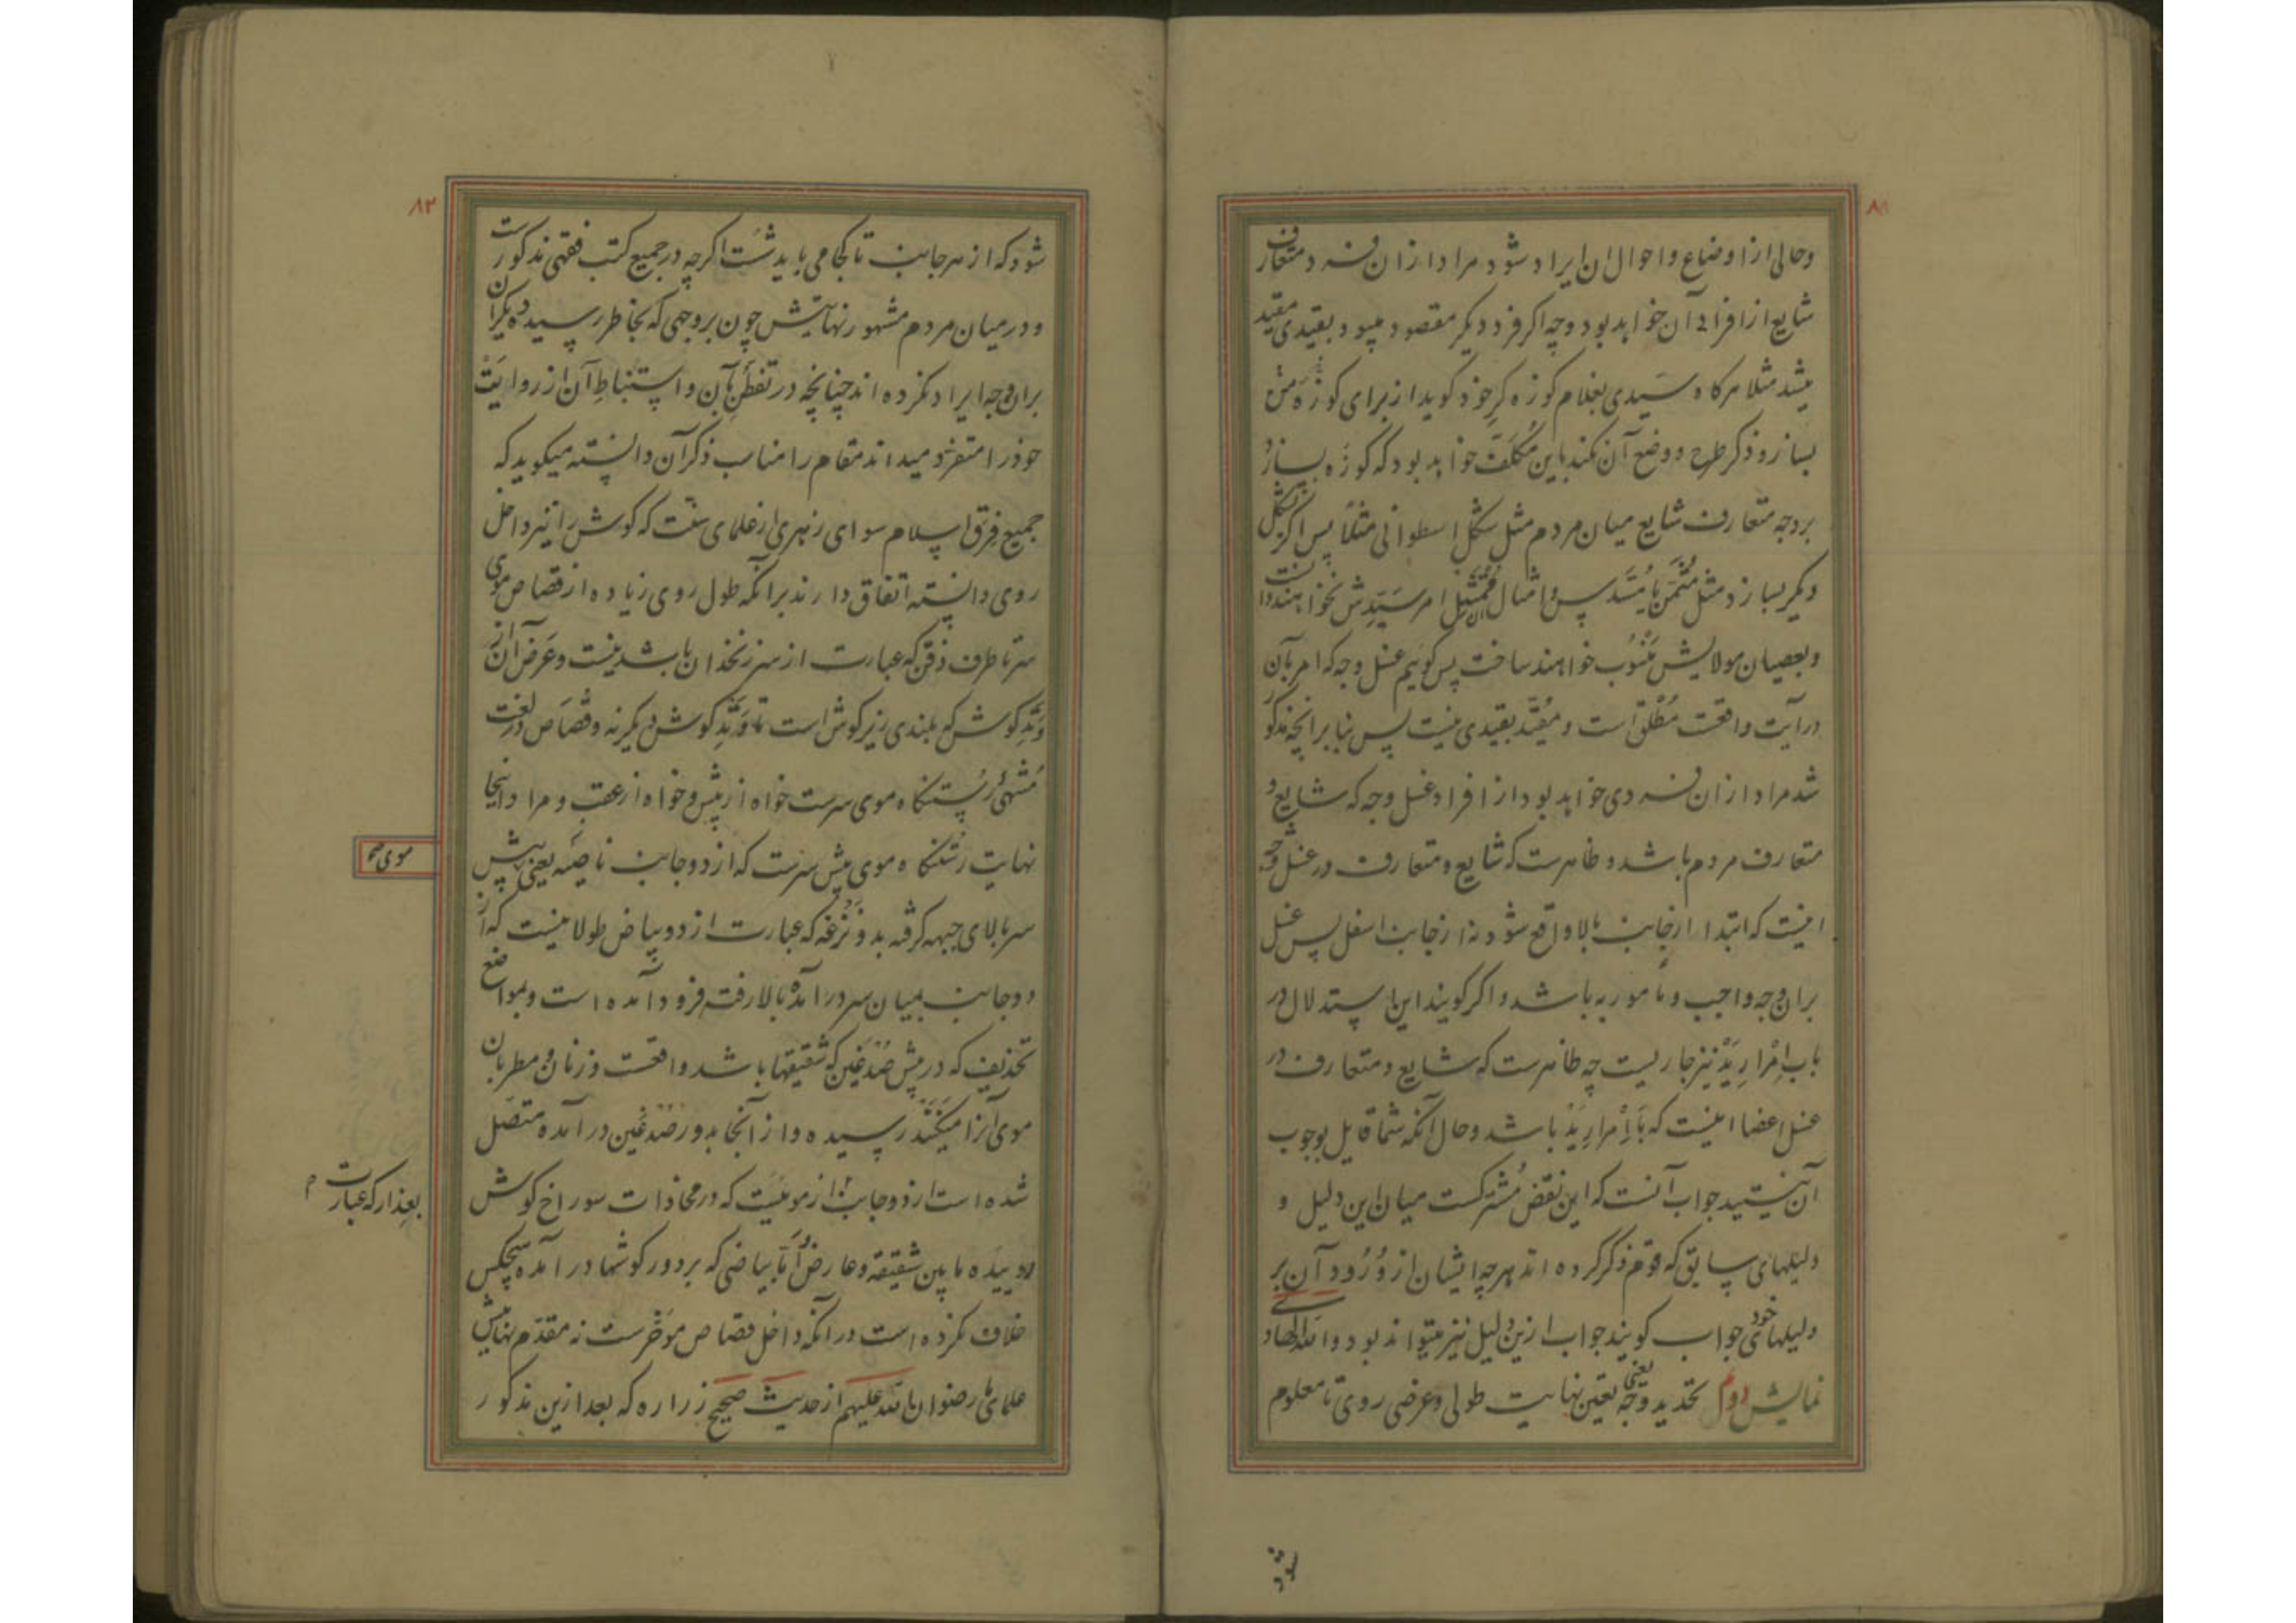 ۸۱
وحالی از اوضاع و احوال ان ایراد شود مراد ازان فرد متعارف
شایع از افراد آن خواهد بود و چه اکر فرد دیکر مقصود میبود بقیدی مقید
میشد مثلا هرکاه سیدی بغلام کوزه کر خود کوید از برای کوزه من
بساز و ذکر طرح و وضع آن نکند باین مکلف خواهد بود که کوزه بسازد
بروجه متعارف شایع میان مردم مثل شکل اسطوانی مثلاً پس اکر بشکل
دیکر بسازد مثل مثمن یا مسدس و امثال ان ممتثل امر سیدش نخواهند دانست
و بعصیان مولایش منسوب خواهند ساخت پس کوئیم غسل وجه که امر بآن
در آیت واقعست مطلق است و مقید بقیدی نیست پس بنا بر انچه مذکور
شد مراد ازان فردی خواهد بود از افراد غسل وجه که شایع و
متعارف مردم باشد و ظاهرست که شایع و متعارف در غسل وجه
اینست که ابتدا از جانب بالا واقع شود نه از جانب اسفل پس غسل
بران وجه واجب و مامور به باشد و اکر کویند این استدلال در
باب امرار ید نیز جاریست چه ظاهرست که شایع و متعارف در
غسل اعضا اینست که با امرار ید باشد و حال آنکه شما قایل بوجوب
آن نیستید جواب آنست که این نقض مشترکست میان این دلیل و
دلیلهای سابق که قوم ذکر کرده اند هرچه ایشان از ورود آن بر
دلیلهای خود جواب کویند جواب ازین دلیل نیز میتواند بود والله الهادی
نمایش دوم تحدید وجه یعنی تعین نهایت طولی و عرضی روی تا معلوم
شود
۸۲
شود که از هر جانب تا کجا می باید شست اکرچه در جمیع کتب فقهی مذکورست
و در میان مردم مشهور نهایتش چون بروجهی که بخاطر رسیده دیکران
بران وجه ایراد نکرده اند چنانچه در تفطن بآن و استنباط آن از روایت
خود را متفرد میداند مقام را مناسب ذکر آن دانسته میکوید که
جمیع فرق اسلام سوای زهری از علمای سنت که کوش را نیز داخل
روی دانسته اتفاق دارند بر آنکه طول روی زیاده از قصاص موی
سر تا طرف ذقن که عبارت از سر زنخدان باشد نیست و عرض آن از
وتد کوش که بلندی زیر کوش است تا وتد کوش دیکر نه و قصاص در لغت
منتهی رستنکاه موی سرست خواه از پیش و خواه از عقب و مراد اینجا
نهایت رستنکاه موی پیش سرست که از دو جانب ناصیه یعنی پیش
موی صح
سر بالای جبهه کرفته بدو نزعه که عبارت از دو بیاض طولانیست که از
دو جانب بمیان سر درآمده بالا رفته فرود آمده است و بمواضع
تحذیف که در پیش صدغین که شقیقها باشد واقعست و زنان و مطربان
موی آنرا میکنند رسیده و از آنجا بدور صدغین در آمده متصل
شده است از دو جانب از موئیست که در محاذات سوراخ کوش
بعذار که عبارت
روییده ما بین شقیقه و عارض و اما بیاضی که بر دور کوشها در آمده هیچکس
خلاف نکرده است در آنکه داخل قصاص موخرست نه مقدم نهایتش
علمای ما رضوان الله علیهم از حدیث صحیح زراره که بعد ازین مذکور